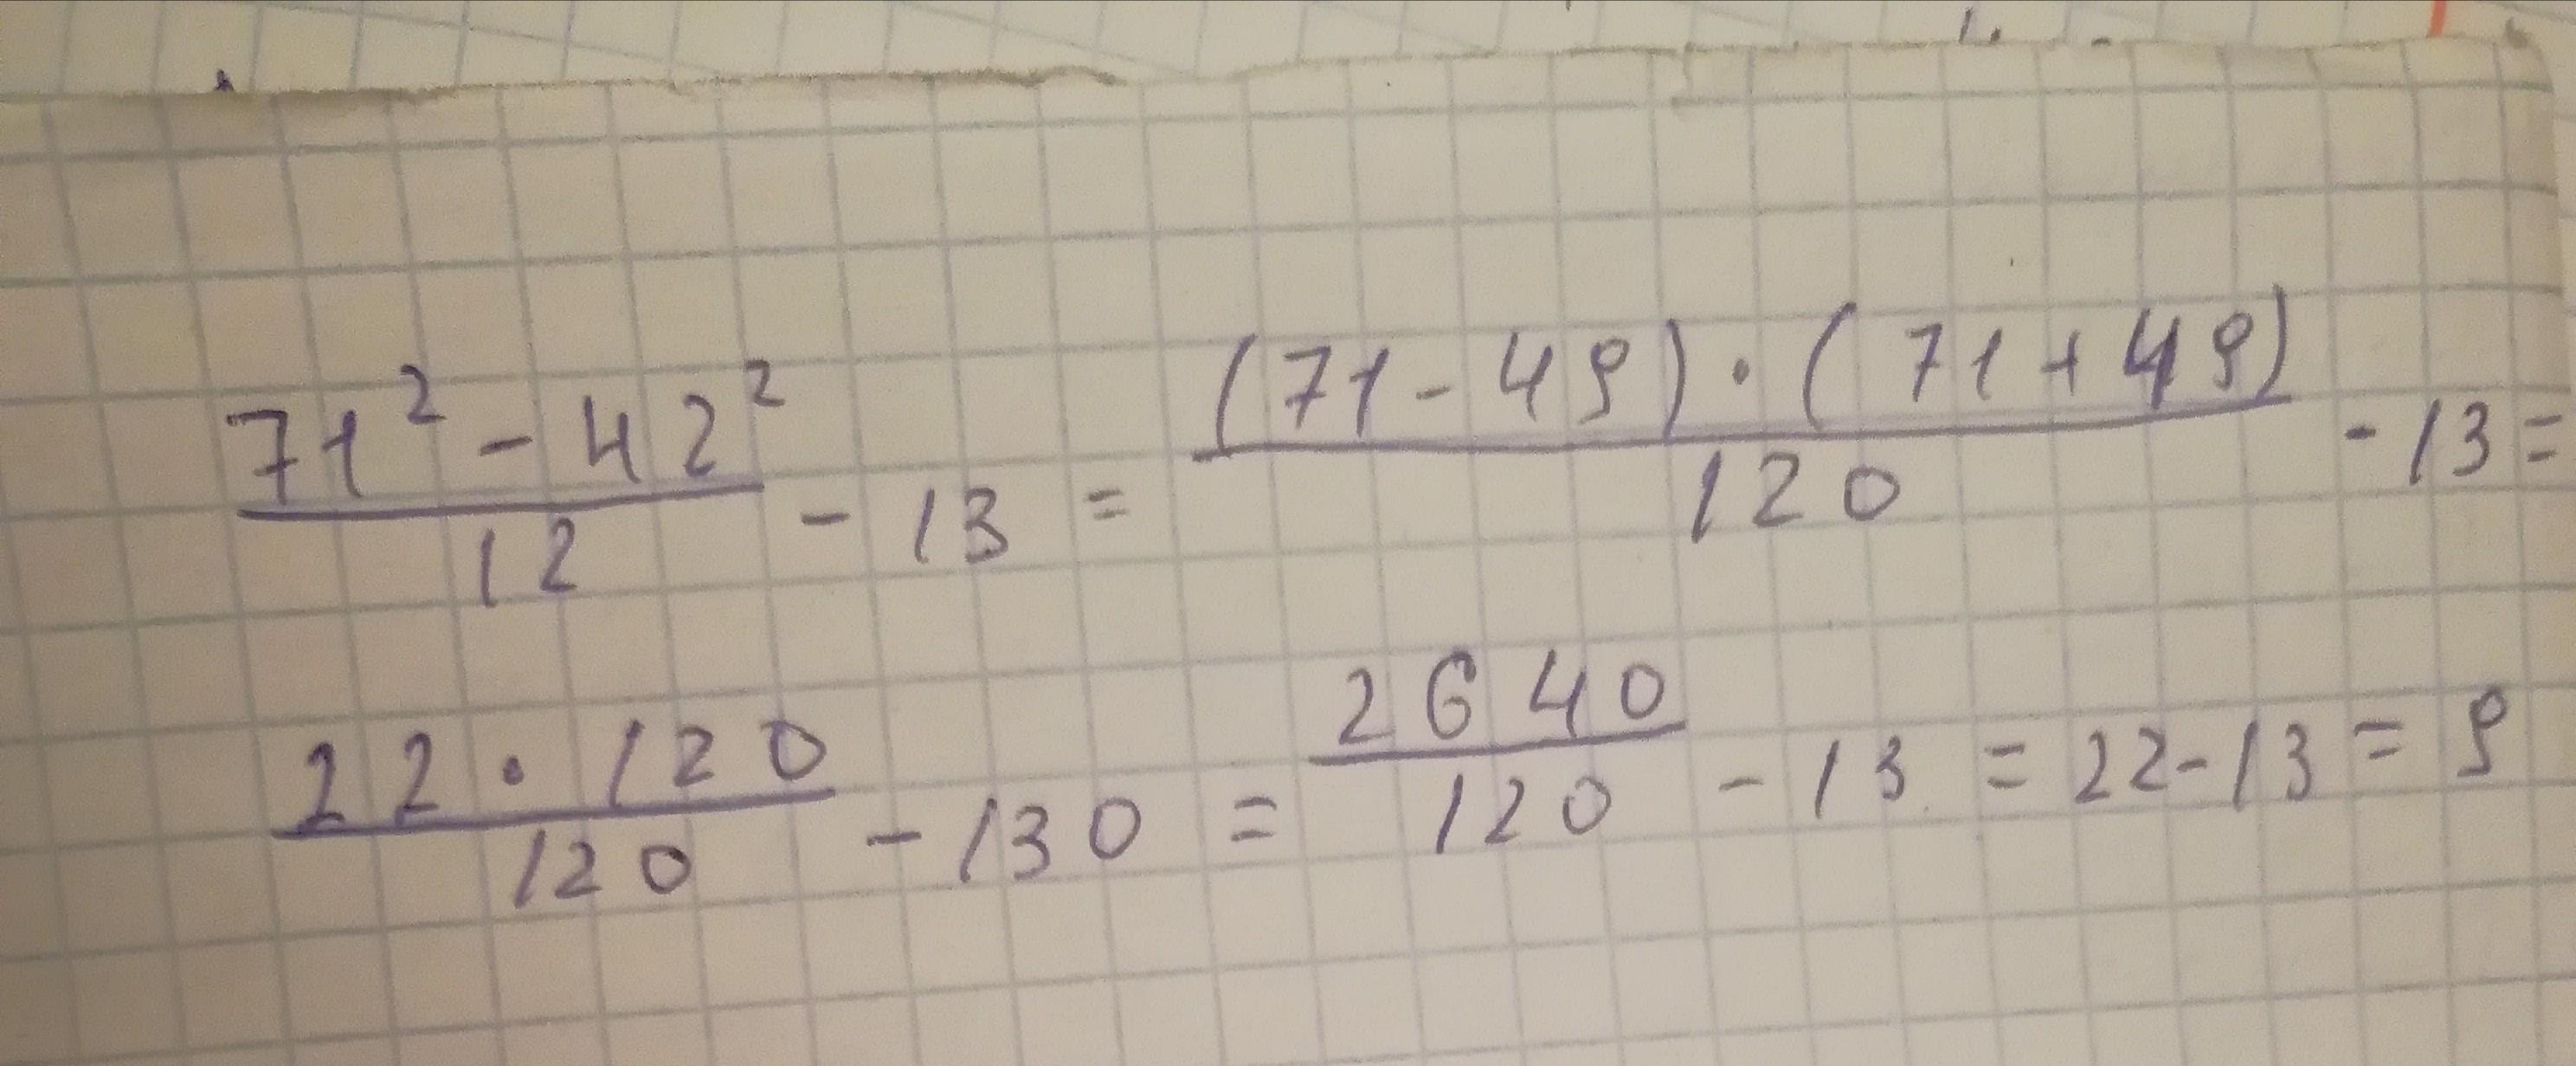 (71² - 42²)/12 - 13 = ((71 - 49) · (71 + 49))/120 - 13 =
(22 · 120)/120 - 130 = 2640/120 - 13 = 22 - 13 = 9